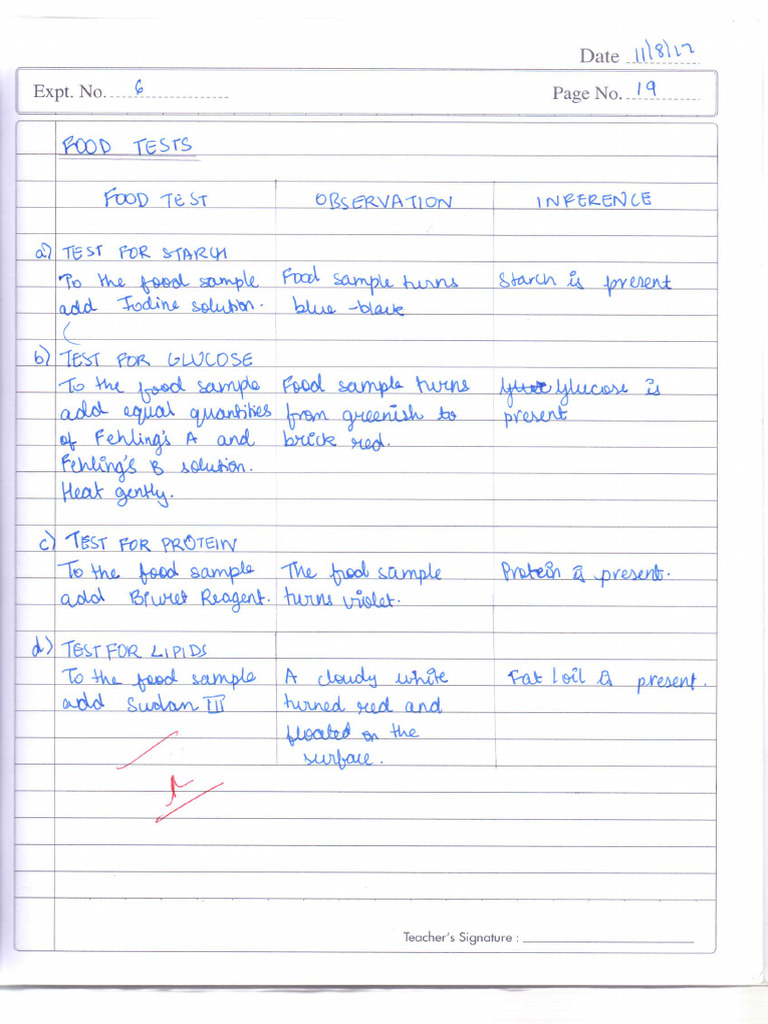 Date 11/8/17
Expt. No. 6
Page No. 19
FOOD TESTS
FOOD TEST OBSERVATION INFERENCE
a) TEST FOR STARCH
To the food sample Food sample turns Starch is present
add Iodine solution. blue-black
b) TEST FOR GLUCOSE
To the food sample Food sample turns Glucose is
add equal quantities from greenish to present
of Fehling's A and brick red.
Fehling's B solution.
Heat gently.
c) TEST FOR PROTEIN
To the food sample The food sample Protein is present.
add Biuret Reagent. turns violet.
d) TEST FOR LIPIDS
To the food sample A cloudy white Fat/oil is present.
add Sudan III turned red and
floated on the
surface.
Teacher's Signature :